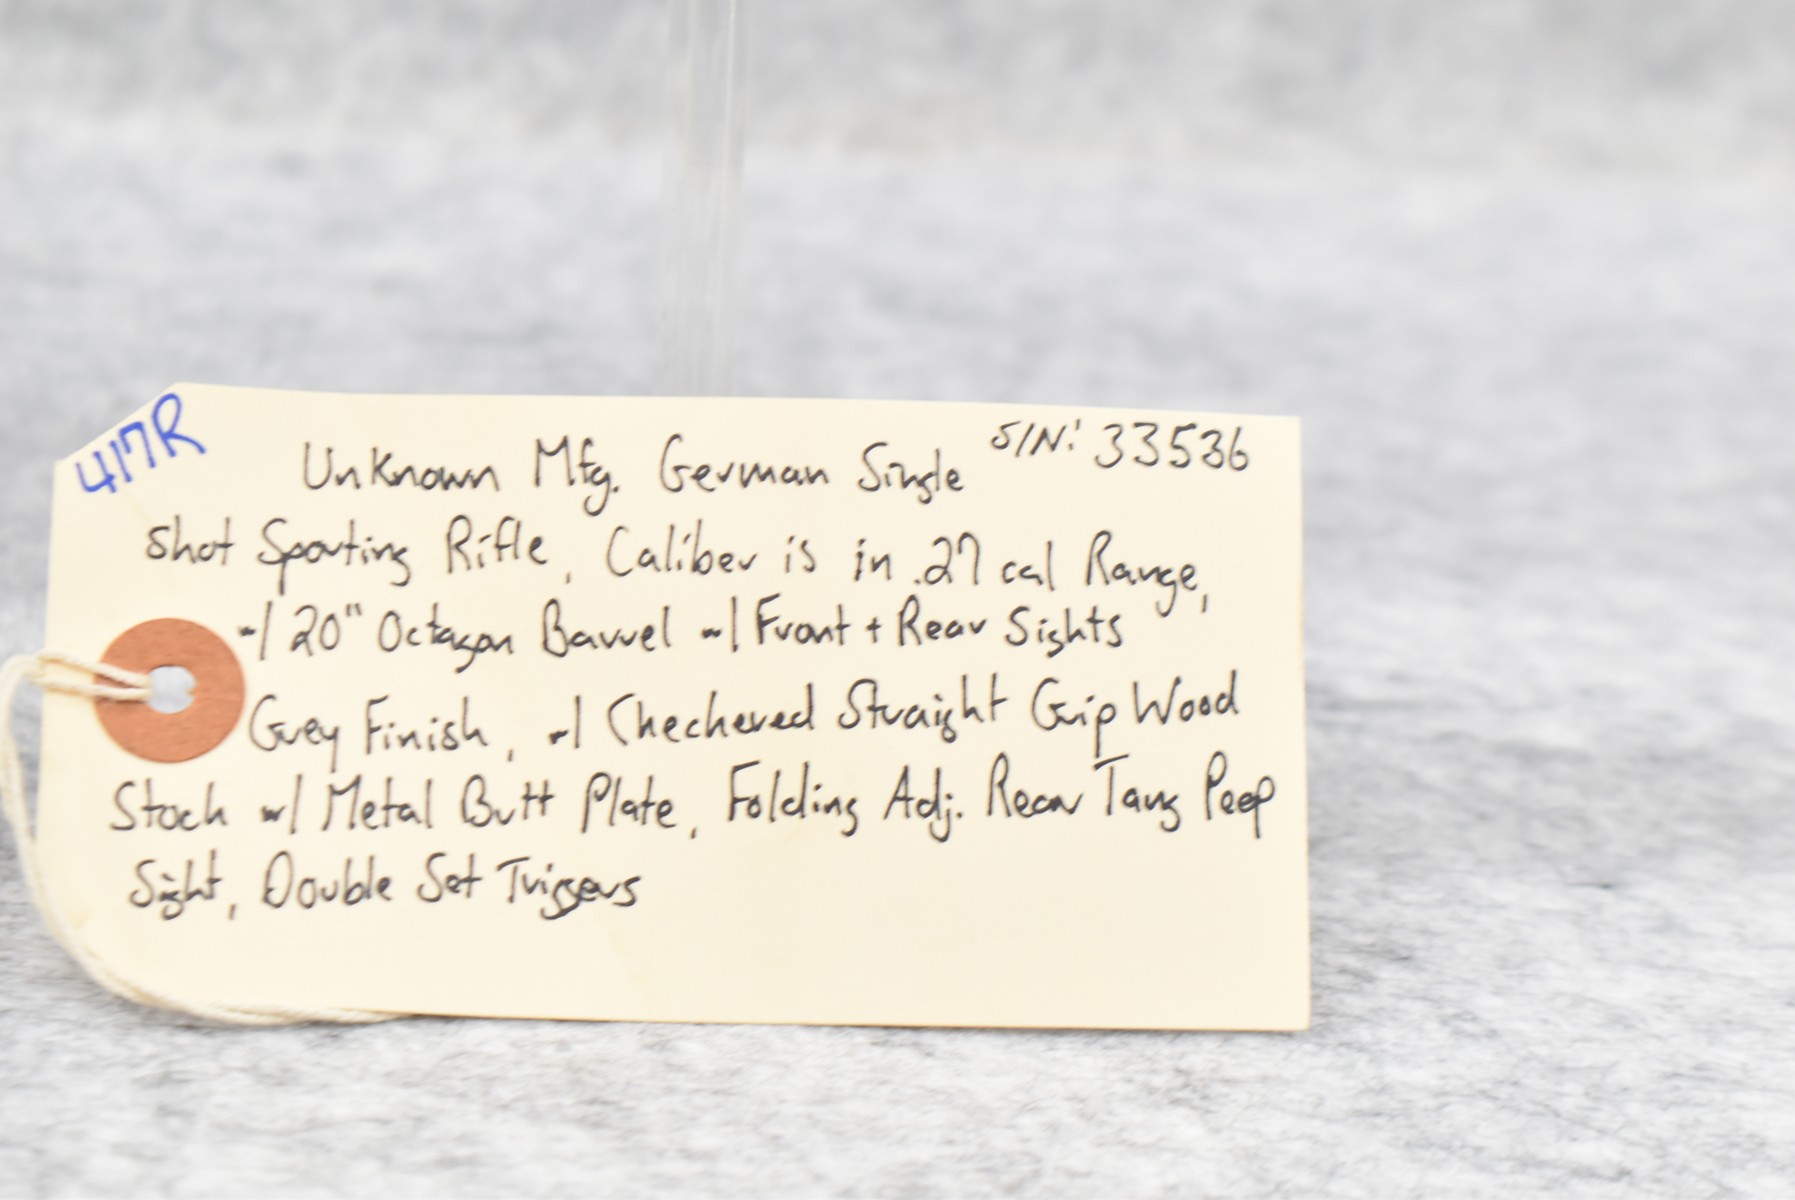 417R
Unknown Mfg. German Single S/N: 33536
Shot Sporting Rifle, Caliber is in .27 cal Range,
w/ 20" Octagon Barrel w/ Front + Rear Sights
Grey Finish, w/ Checkered Straight Grip Wood
Stock w/ Metal Butt Plate, Folding Adj. Rear Tang Peep
Sight, Double Set Triggers